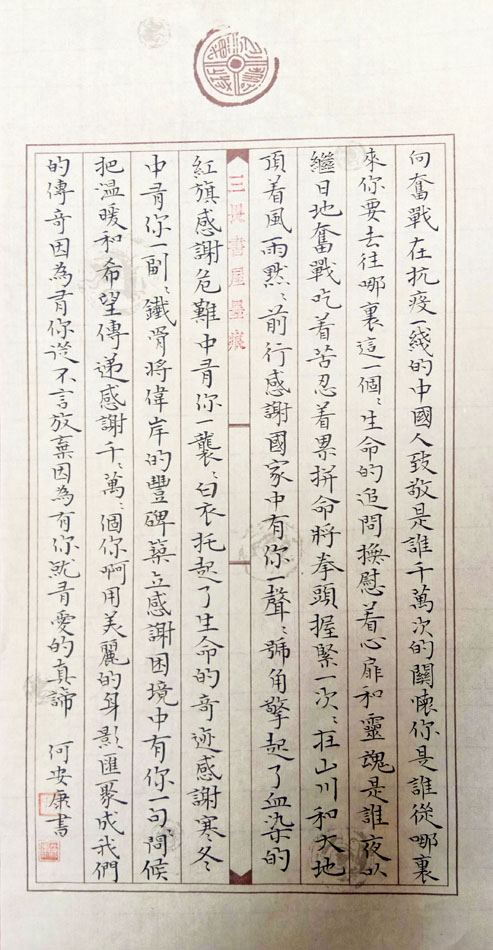 向奮戰在抗疫一綫的中國人致敬是誰千萬次的關懷你是誰從哪裏
來你要去往哪裏這一個〻生命的追問撫慰着心扉和靈魂是誰一夜以
繼日地奮戰吃着苦忍着累拼命將拳頭握緊一次〻在山川和大地
頂着風雨默〻前行感謝國家中有你一聲〻號角擎起了血染的
三畏書屋墨痕
紅旗感謝危難中有你一襲〻白衣托起了生命的奇迹感謝寒冬
中有你一副〻鐵骨將偉岸的豐碑築立感謝困境中有你一句〻問候
把温暖和希望傳遞感謝千〻萬〻個你啊用美麗的身影匯聚成我們
的傳奇因為有你從不言放棄因為有你就有愛的真諦
何安康書